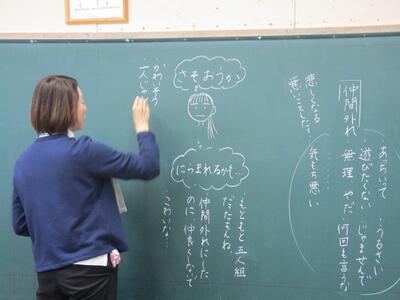 あちいって ・うるさい
遊びたくない ・じゃませんで
・無理・やだ ・何回も言うな
仲間外れ
・気もち悪い
悲しくなる
悪いことした…
さそおうか
・かわいそう
・一人じゃ
にらまれるかも…
・もともと五人組
だったもんね
仲間外れにした
のに、仲良くなって
こわいな…